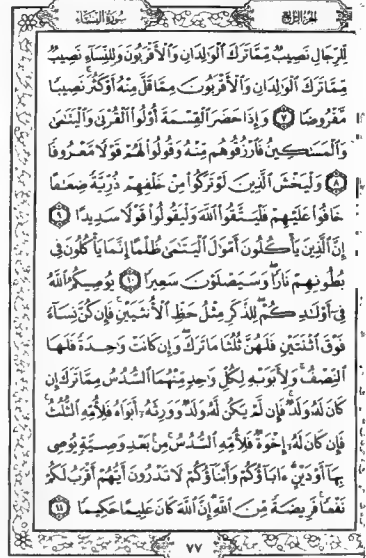 الجزء الرابع
سورة النساء
لِّلرِّجَالِ نَصِيبٌ مِّمَّا تَرَكَ الْوَالِدَانِ وَالْأَقْرَبُونَ وَلِلنِّسَاءِ نَصِيبٌ
مِّمَّا تَرَكَ الْوَالِدَانِ وَالْأَقْرَبُونَ مِمَّا قَلَّ مِنْهُ أَوْ كَثُرَ نَصِيبًا
مَّفْرُوضًا ٧ وَإِذَا حَضَرَ الْقِسْمَةَ أُوْلُوا الْقُرْبَىٰ وَالْيَتَامَىٰ
وَالْمَسَاكِينُ فَارْزُقُوهُم مِّنْهُ وَقُولُوا لَهُمْ قَوْلًا مَّعْرُوفًا
٨ وَلْيَخْشَ الَّذِينَ لَوْ تَرَكُوا مِنْ خَلْفِهِمْ ذُرِّيَّةً ضِعَافًا
خَافُوا عَلَيْهِمْ فَلْيَتَّقُوا اللَّهَ وَلْيَقُولُوا قَوْلًا سَدِيدًا ٩
إِنَّ الَّذِينَ يَأْكُلُونَ أَمْوَالَ الْيَتَامَىٰ ظُلْمًا إِنَّمَا يَأْكُلُونَ فِي
بُطُونِهِمْ نَارًا وَسَيَصْلَوْنَ سَعِيرًا ١٠ يُوصِيكُمُ اللَّهُ
فِي أَوْلَادِكُمْ لِلذَّكَرِ مِثْلُ حَظِّ الْأُنثَيَيْنِ فَإِن كُنَّ نِسَاءً
فَوْقَ اثْنَتَيْنِ فَلَهُنَّ ثُلُثَا مَا تَرَكَ وَإِن كَانَتْ وَاحِدَةً فَلَهَا
النِّصْفُ وَلِأَبَوَيْهِ لِكُلِّ وَاحِدٍ مِّنْهُمَا السُّدُسُ مِمَّا تَرَكَ إِن
كَانَ لَهُ وَلَدٌ فَإِن لَّمْ يَكُن لَّهُ وَلَدٌ وَوَرِثَهُ أَبَوَاهُ فَلِأُمِّهِ الثُّلُثُ
فَإِن كَانَ لَهُ إِخْوَةٌ فَلِأُمِّهِ السُّدُسُ مِن بَعْدِ وَصِيَّةٍ يُوصِي
بِهَا أَوْ دَيْنٍ آبَاؤُكُمْ وَأَبْنَاؤُكُمْ لَا تَدْرُونَ أَيُّهُمْ أَقْرَبُ لَكُمْ
نَفْعًا فَرِيضَةً مِّنَ اللَّهِ إِنَّ اللَّهَ كَانَ عَلِيمًا حَكِيمًا ١١
٧٧